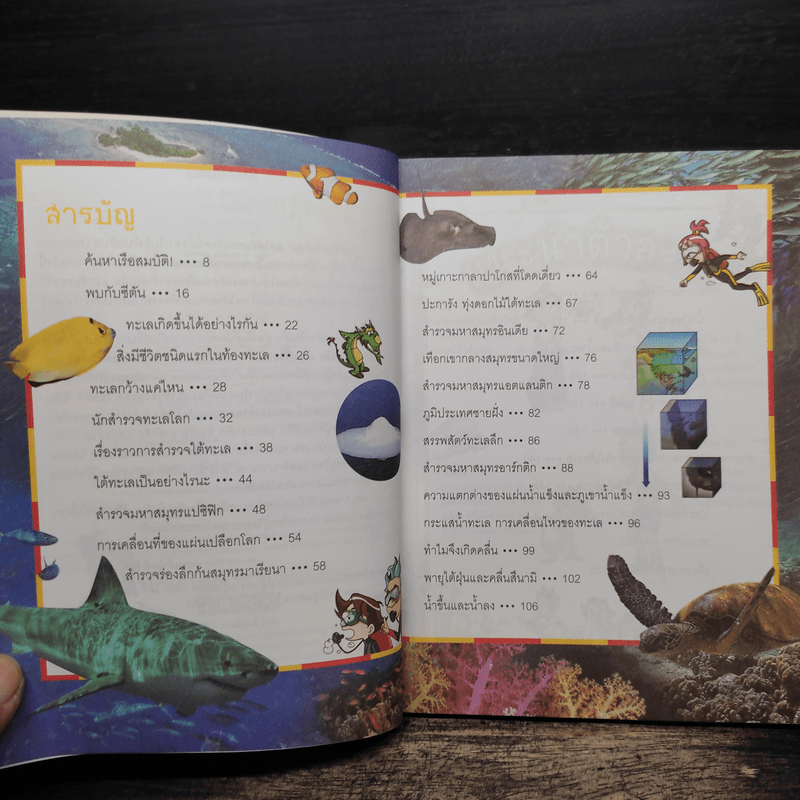 สารบัญ
ค้นหาเรือสมบัติ! ••• 8
พบกับซีตัน ••• 16
ทะเลเกิดขึ้นได้อย่างไรกัน ••• 22
สิ่งมีชีวิตชนิดแรกในท้องทะเล ••• 26
ทะเลกว้างแค่ไหน ••• 28
นักสำรวจทะเลโลก ••• 32
เรื่องราวการสำรวจใต้ทะเล ••• 38
ใต้ทะเลเป็นอย่างไรนะ ••• 44
สำรวจมหาสมุทรแปซิฟิก ••• 48
การเคลื่อนที่ของแผ่นเปลือกโลก ••• 54
สำรวจร่องลึกก้นสมุทรมาเรียนา ••• 58
หมู่เกาะกาลาปาโกสที่โดดเดี่ยว ••• 64
ปะการัง ทุ่งดอกไม้ใต้ทะเล ••• 67
สำรวจมหาสมุทรอินเดีย ••• 72
เทือกเขากลางสมุทรขนาดใหญ่ ••• 76
สำรวจมหาสมุทรแอตแลนติก ••• 78
ภูมิประเทศชายฝั่ง ••• 82
สรรพสัตว์ทะเลลึก ••• 86
สำรวจมหาสมุทรอาร์กติก ••• 88
ความแตกต่างของแผ่นน้ำแข็งและภูเขาน้ำแข็ง ••• 93
กระแสน้ำทะเล การเคลื่อนไหวของทะเล ••• 96
ทำไมจึงเกิดคลื่น ••• 99
พายุไต้ฝุ่นและคลื่นสึนามิ ••• 102
น้ำขึ้นและน้ำลง ••• 106